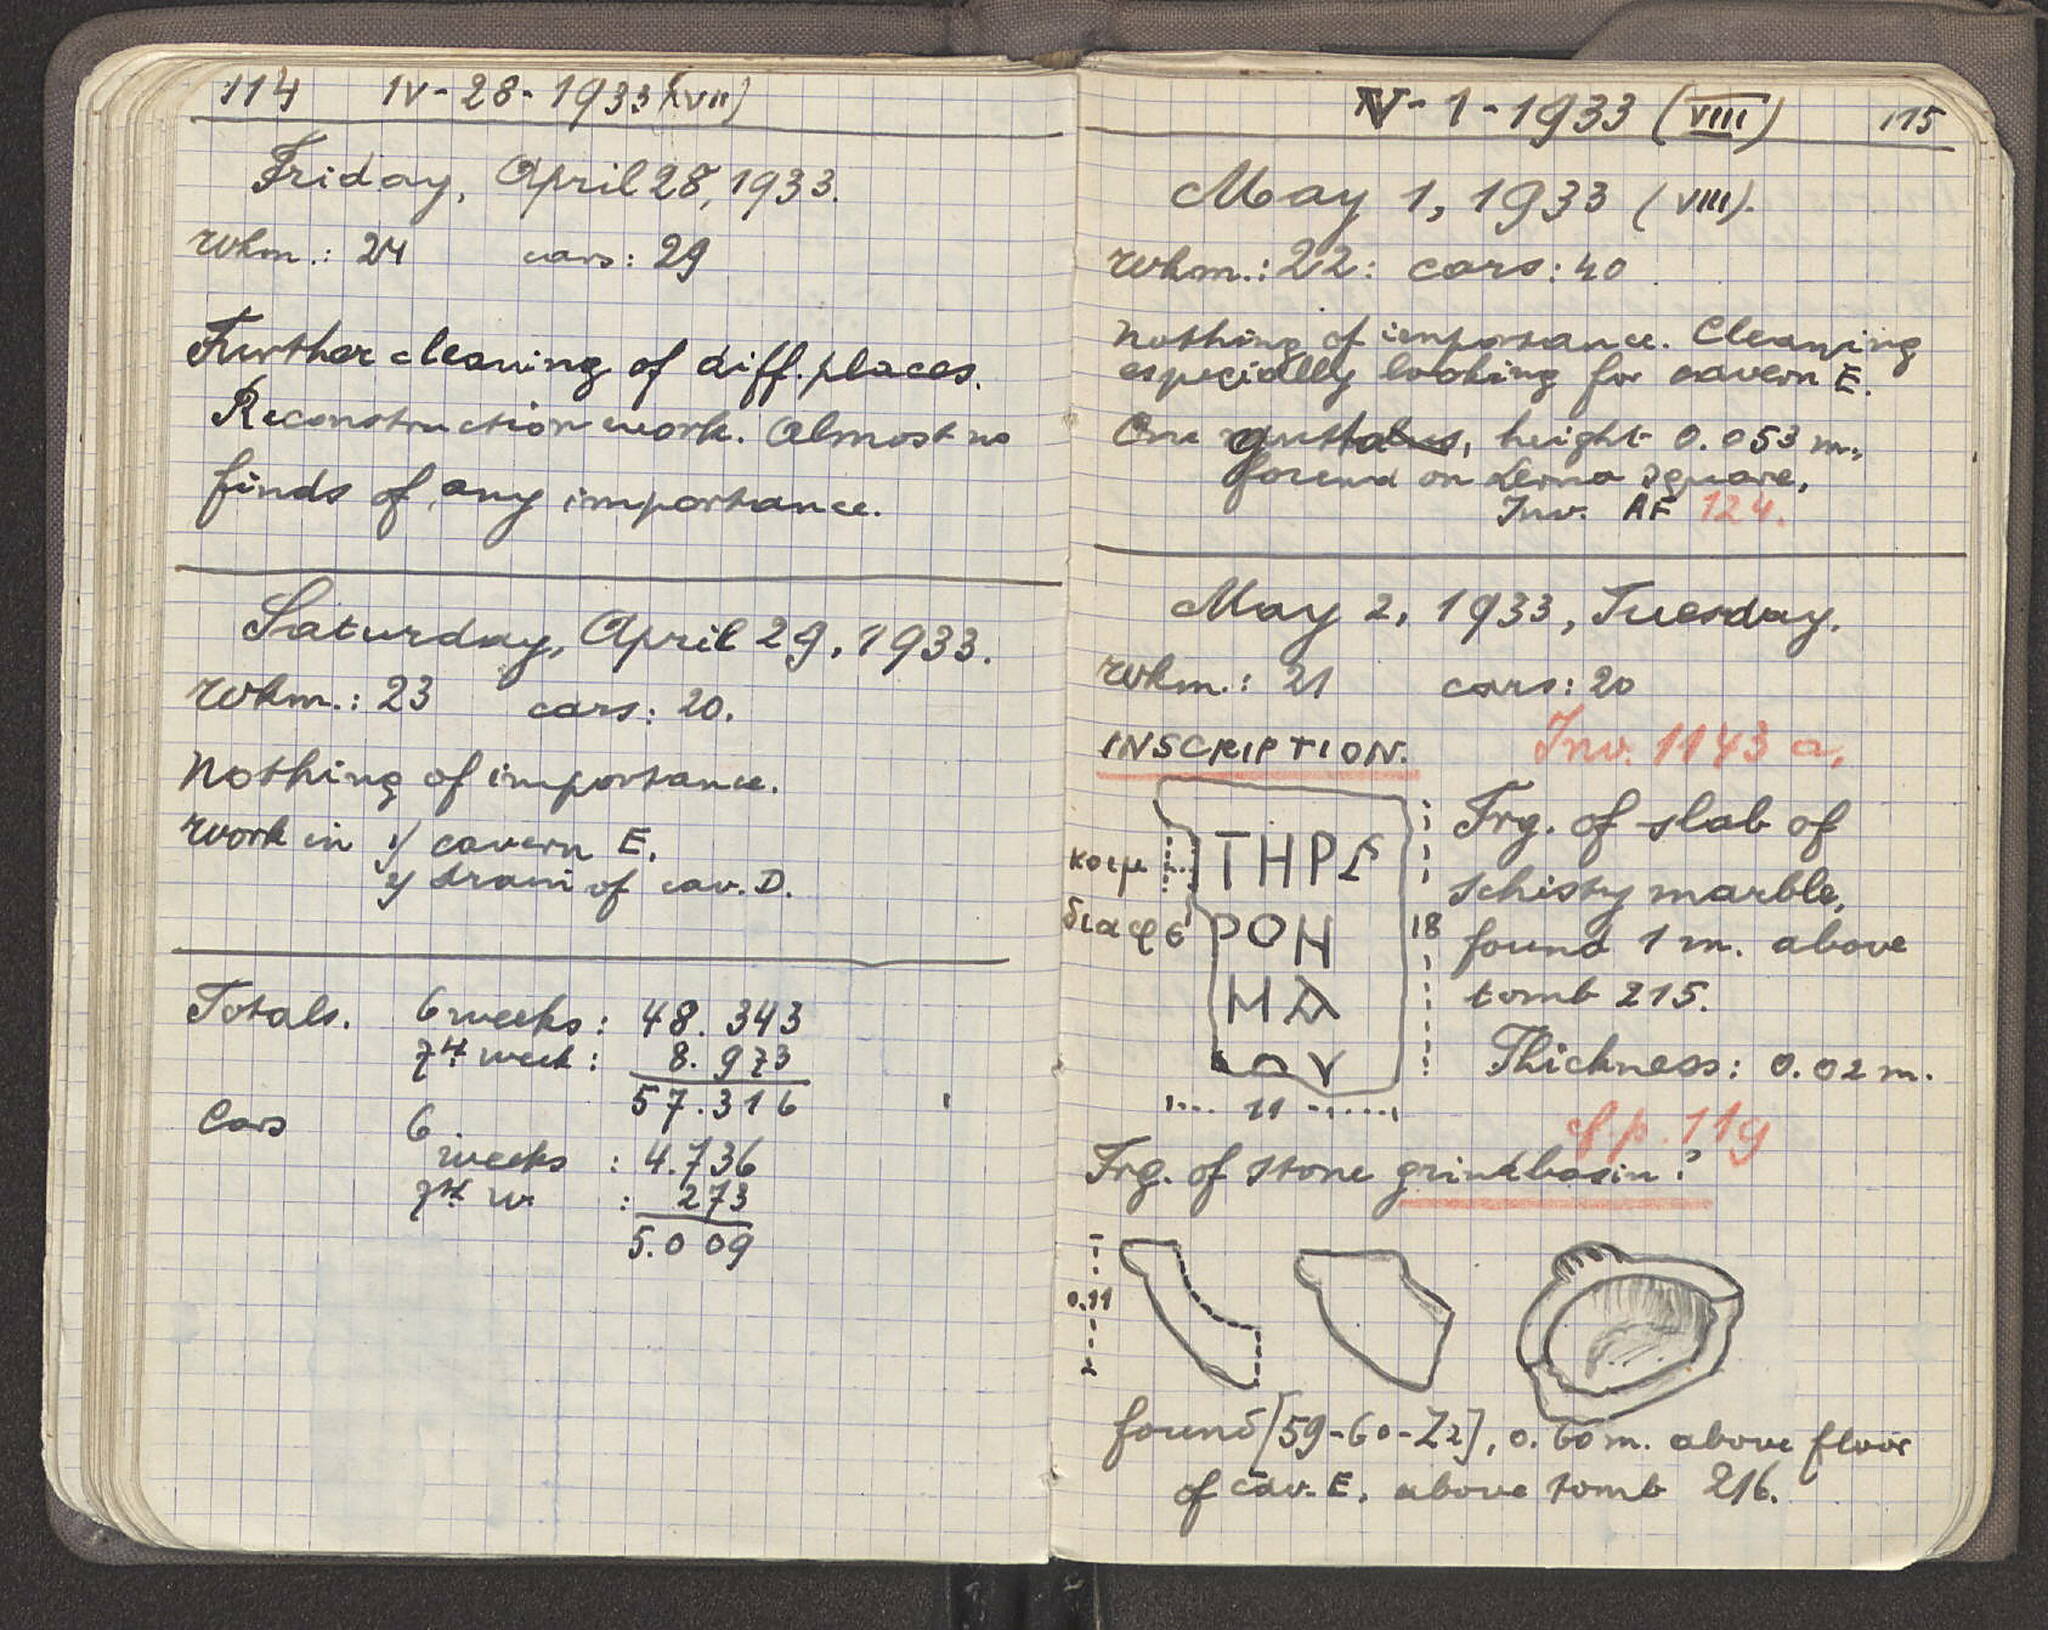 114 IV-28-1933 (VII)
Friday, April 28, 1933.
Wkm.: 24 cars: 29
Further cleaning of diff. places.
Reconstruction work. Almost no
finds of any importance.
Saturday, April 29, 1933.
Wkm.: 23 cars: 20.
Nothing of importance.
Work in 1/ cavern E.
2/ drain of cav. D.
Totals. 6 weeks: 48.343
7th week: 8.973
57.316
Cars 6
weeks : 4.736
7th w. : 273
5.009
V-1-1933 (VIII) 115
May 1, 1933 (VIII).
Wkm.: 22: cars: 40
Nothing of importance. Cleaning
especially looking for cavern E.
One guttus, height 0.053 m.,
found on Lerna Square,
Inv. AF 124.
May 2, 1933, Tuesday.
Wkm.: 21 cars: 20
INSCRIPTION. Inv. 1143 a,
κοιμ ΤΗΡΕ
διαφε ΡΟΗ
ΗΑ
18
11
Frg. of slab of
schisty marble,
found 1 m. above
tomb 215.
Thickness: 0.02 m.
cf p. 119
Frg. of stone grindbasin?
0.11
found [59-60-Z2], 0.60 m. above floor
of cav. E, above tomb 216.